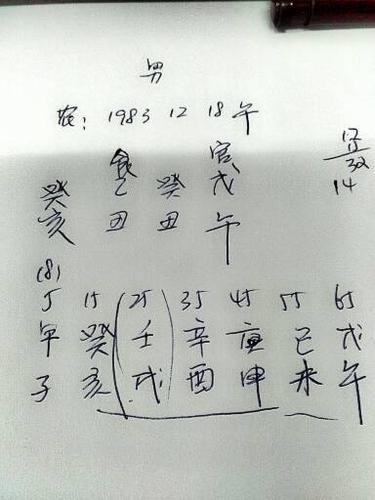 男
农: 1983 12 18午
食 官
癸 乙 癸 戊 14
亥 丑 丑 午
(8)
5 15 25 35 45 55 65
甲 癸 壬 辛 庚 己 戊
子 亥 戌 酉 申 未 午